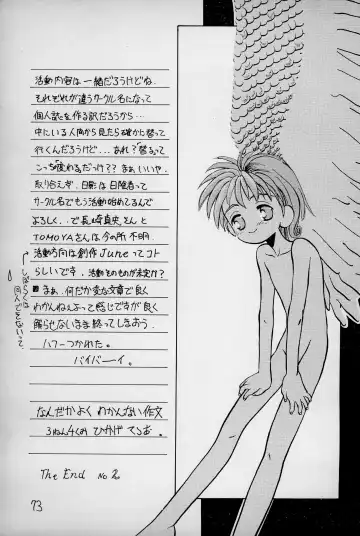 活動内容は一緒だろうけどね.
それぞれが違うサークル名になって
個人誌を作る訳だろうから…
中にいる人間から見たら確かに替って
行くんだろうけど…あれ？替るって
こっち使わるだっけ？？まぁいいや.
取り合えず. 日影は日陰者って
サークル名でもう活動始めてるんで
よろしく. で長崎真央さんと
TOMOYAさんは今の所不明.
活動方向は創作Juneってコト
らしいです. 活動そのものが未定!?
しばらくは個人でをないって
まぁ、何だか変な文章で良く
わかんねぇよって感じですが良く
解らせないまま終ってしまおう.
ハフーつかれた。
バイバーイ。
なんだかよく わかんない作文
3ねん4くみ ひかげ てるお。
The End No 2
73